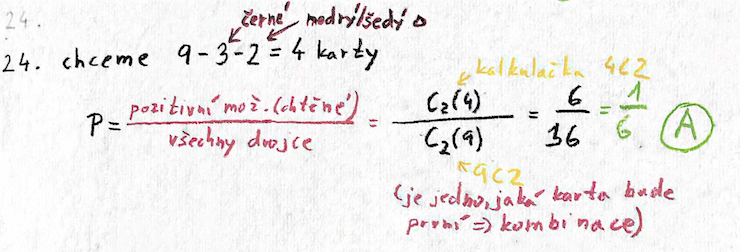 24.
černé modrý/šedý △
24. chceme 9-3-2=4 karty
kalkulačka 4C2
P = pozitivní mož. (chtěné) / všechny dvojce = C₂(4) / C₂(9) = 6 / 36 = 1 / 6 A
9C2
(je jedno, jaká karta bude
první => kombinace)